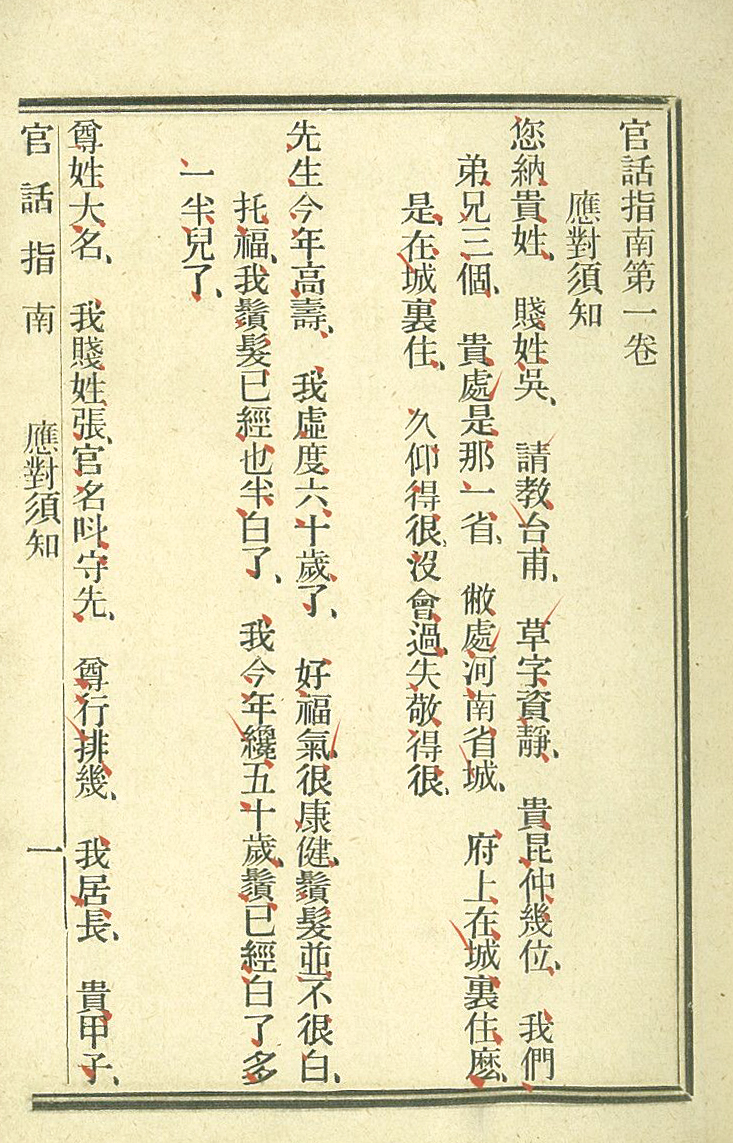 官話指南第一卷
應對須知
您納貴姓、　賤姓吳、　請教台甫、　草字資靜、　貴昆仲幾位、　我們
弟兄三個、　貴處是那一省、　敝處河南省城、　府上在城裏住麽、
是、在城裏住、　久仰得很、沒會過、失敬得很、
先生今年高壽、　我虛度六十歲了、　好福氣、很康健、鬚髮並不很白、
托福、我鬚髮已經也半白了、　我今年纔五十歲、鬚已經白了多
一半兒了、
尊姓大名、　我賤姓張、官名呌守先、　尊行排幾、　我居長、　貴甲子、
官話指南　應對須知　一